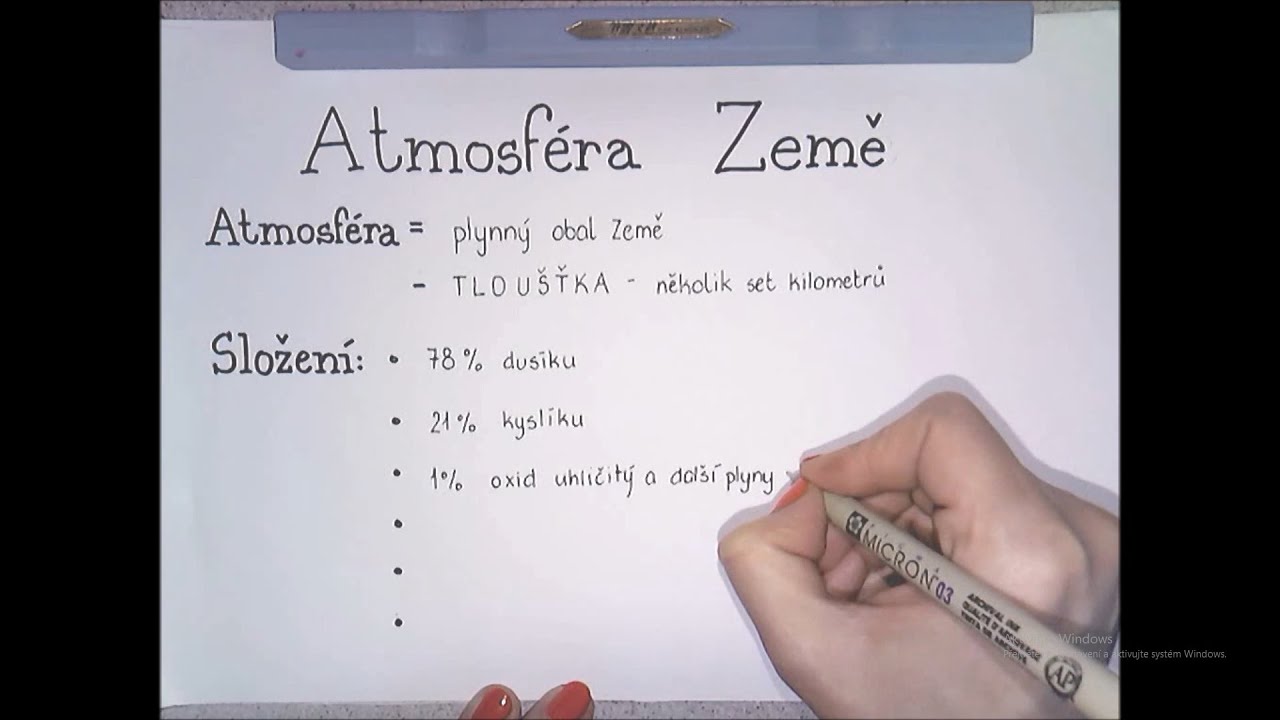 Atmosféra Země
Atmosféra = plynný obal Země
- TLOUŠŤKA - několik set kilometrů
Složení: • 78% dusíku
• 21% kyslíku
• 1% oxid uhličitý a další plyny
MICRON 03
ARCHIVAL INK
AP
Windows
a aktivujte systém Windows.